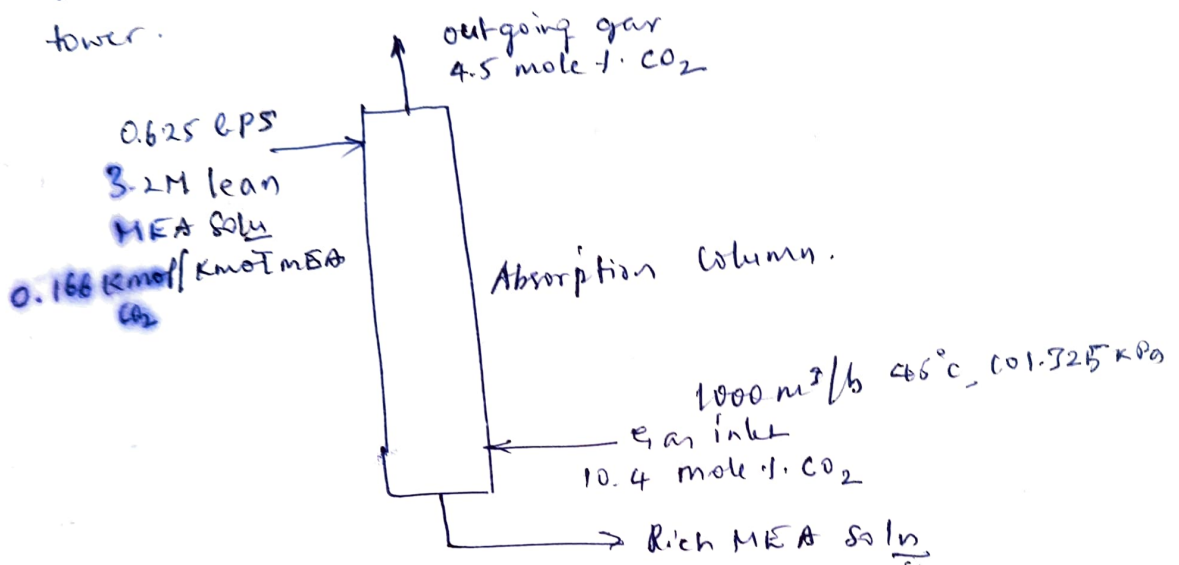 tower.
outgoing gas
4.5 mole %. CO2
0.625 lps
3.2M lean
MEA Soln
0.166 Kmol/Kmol MEA
CO2
Absorption Column.
1000 m³/h 46°C, 101.325 KPa
Gas inlet
10.4 mole %. CO2
Rich MEA Soln